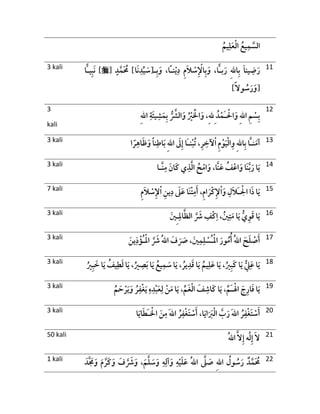 السَّمِيعُ الْعَلِيمُ
11 رَضِينَا بِاللهِ رَبًّا، وَبِالْإِسْلَامِ دِيْنًا، وَبِـ[سَيِّدِنَا] مُحَمَّدٍ [ﷺ] نَبِيًّا 3 kali
[وَرَسُولاً]
12 بِسْمِ اللهِ، وَالْحَمْدُ لِلهِ، وَالْخَيْرُ وَالشَّرُّ بِمَشِيئَةِ اللهِ 3
kali
13 آمَنَّا بِاللهِ وَالْيَوْمِ الْآخِرِ، تُبْنَا إِلَى اللهِ بَاطِنًا وَظَاهِرًا 3 kali
14 يَا رَبَّنَا وَاعْفُ عَنَّا، وَامْحُ الَّذِي كَانَ مِنَّا 3 kali
15 يَا ذَا الْجَلَالِ وَالْإِكْرَامِ، أَمِتْنَا عَلَى دِينِ الْإِسْلَامِ 7 kali
16 يَا قَوِيُّ يَا مَتِينُ، اِكْفِ شَرَّ الظَّالِمِينَ 3 kali
17 أَصْلَحَ اللهُ أُمُورَ الْمُسْلِمِينَ، صَرَفَ اللهُ شَرَّ الْمُؤْذِينَ 3 kali
18 يَا عَلِيُّ يَا كَبِيرُ، يَا عَلِيمُ يَا قَدِيرُ، يَا سَمِيعُ يَا بَصِيرُ، يَا لَطِيفُ يَا خَبِيرُ 3 kali
19 يَا فَارِجَ الْهَمِّ، يَا كَاشِفَ الْغَمِّ، يَا مَنْ لِعَبْدِهِ يَغْفِرُ وَيَرْحَمُ 3 kali
20 أَسْتَغْفِرُ اللهَ رَبَّ الْبَرَايَا، أَسْتَغْفِرُ اللهَ مِنَ الْخَطَايَا 3 kali
21 لَا إِلَهَ إِلَّا اللهُ 50 kali
22 مُحَمَّدٌ رَسُولُ اللهِ صَلَّى اللهُ عَلَيْهِ وَآلِهِ وَسَلَّمَ، وَشَرَّفَ وَكَرَّمَ وَمَجَّدَ 1 kali